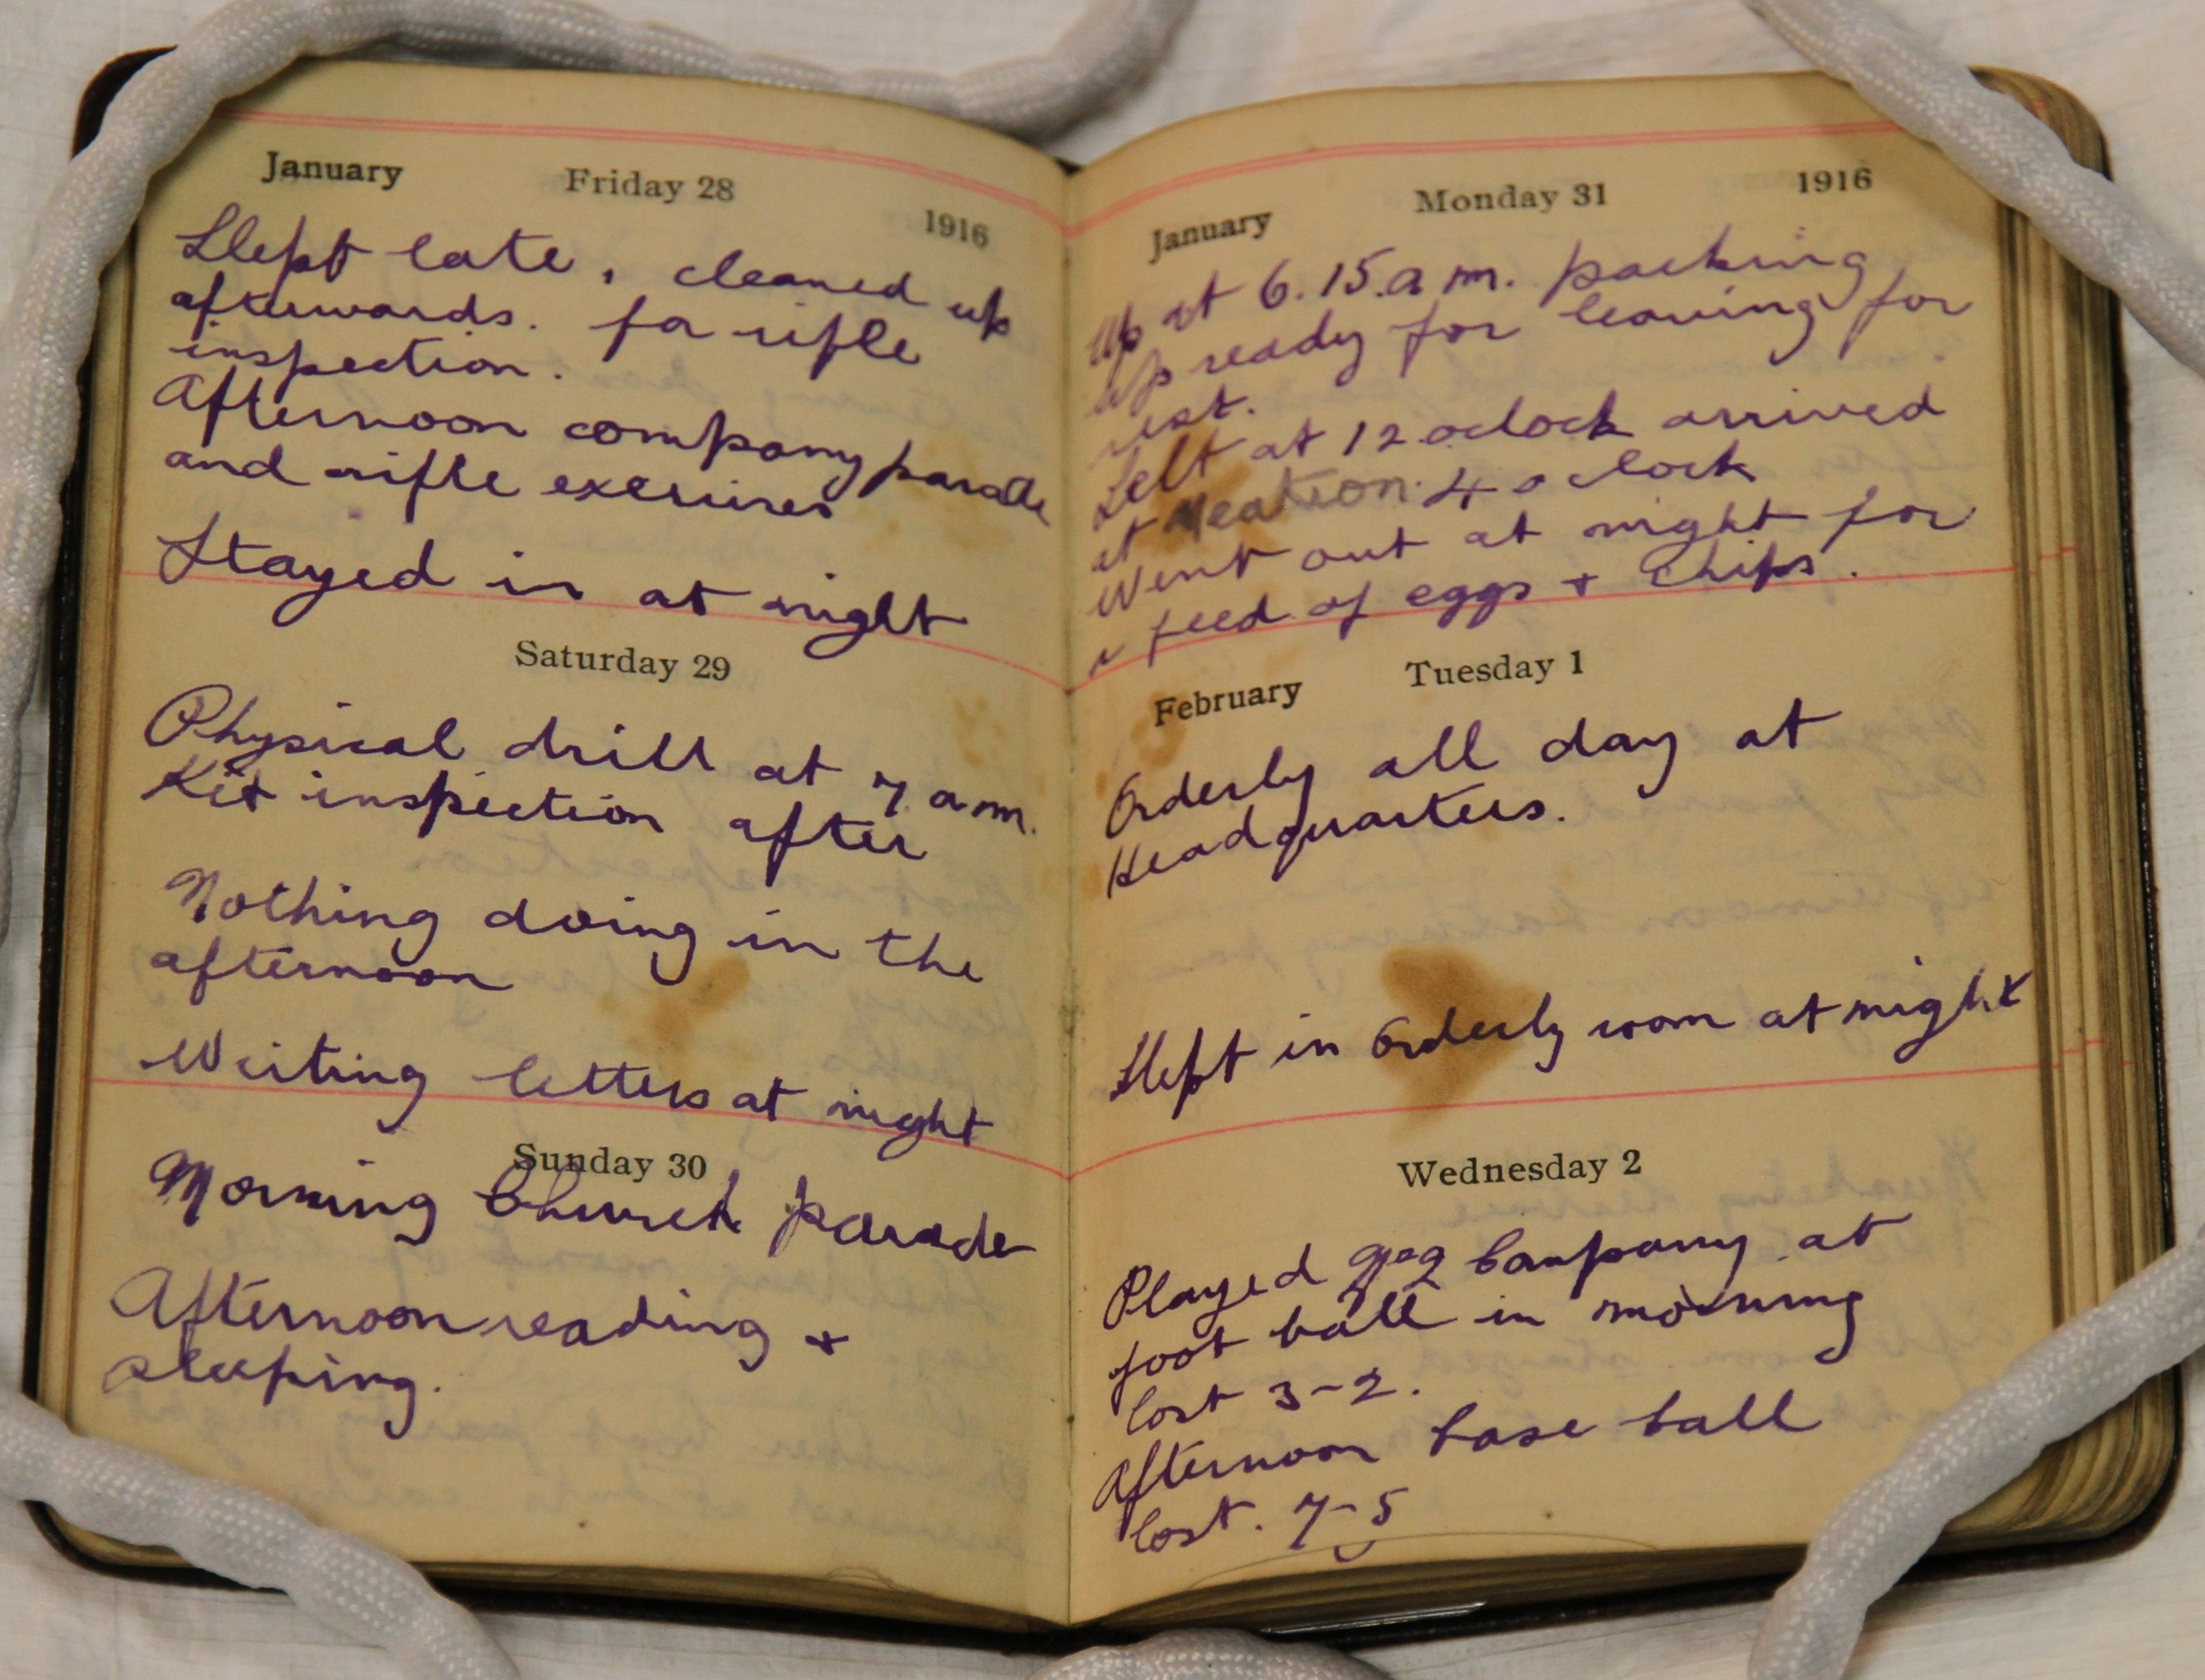 January Friday 28 1916
Slept late, cleaned up
afterwards. for rifle
inspection.
Afternoon company parade
and rifle exercises
Stayed in at night
Saturday 29
Physical drill at 7 a.m.
Kit inspection after
Nothing doing in the
afternoon
Writing letters at night
Sunday 30
Morning Church parade
Afternoon reading +
sleeping.
January Monday 31 1916
Up at 6.15.a m. packing
up ready for leaving for
rest.
Left at 12 oclock arrived
at 4 o clock
Went out at night for
a feed of eggs + chips.
February Tuesday 1
Orderly all day at
Headquarters.
Slept in Orderly room at night
Wednesday 2
Played Company at
foot ball in morning
lost 3-2.
Afternoon base ball
lost. 7-5